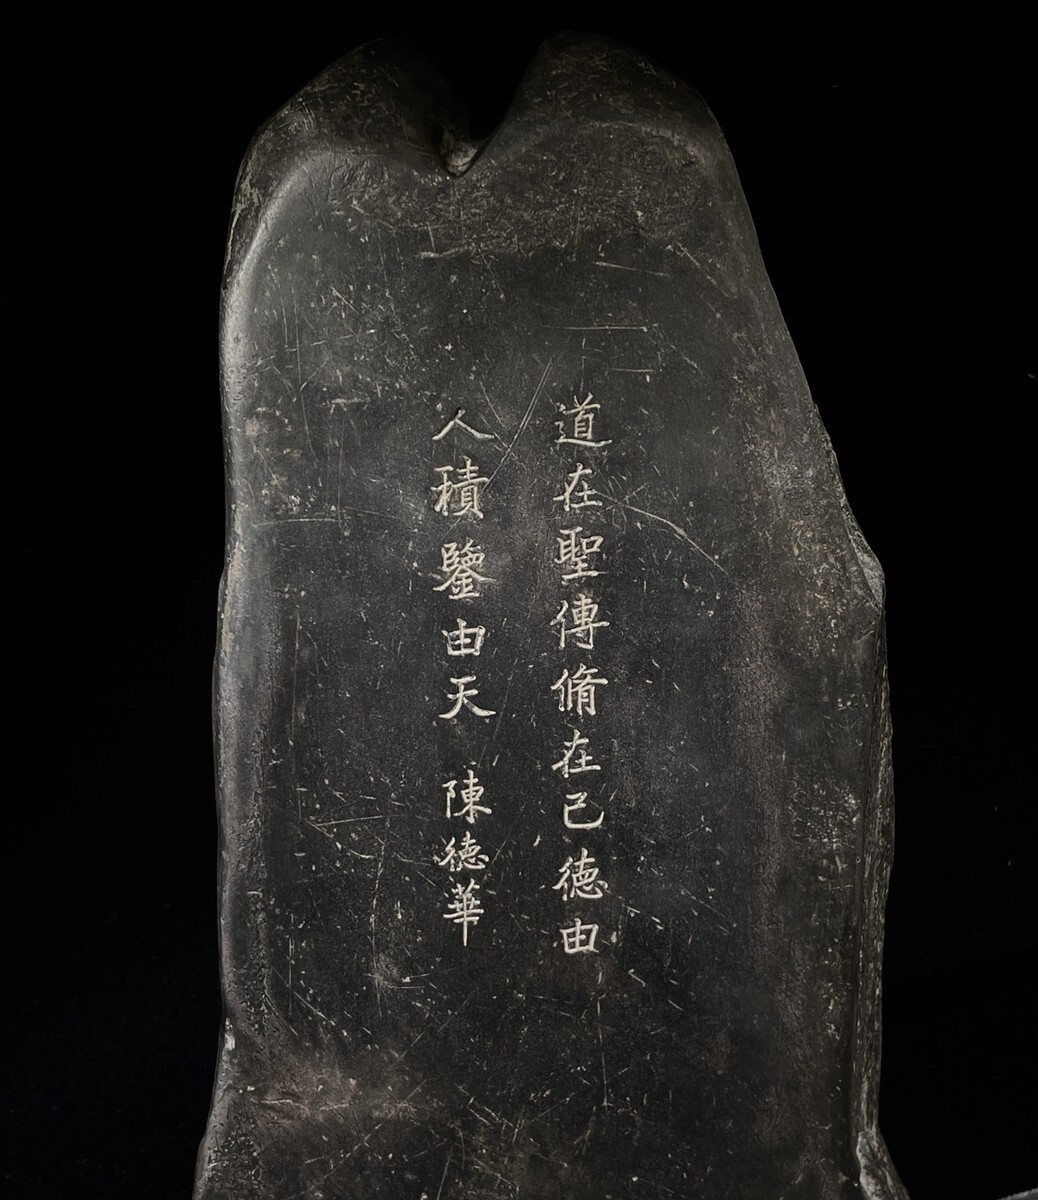 道在聖傳脩在己德由
人積鑒由天 陳德華